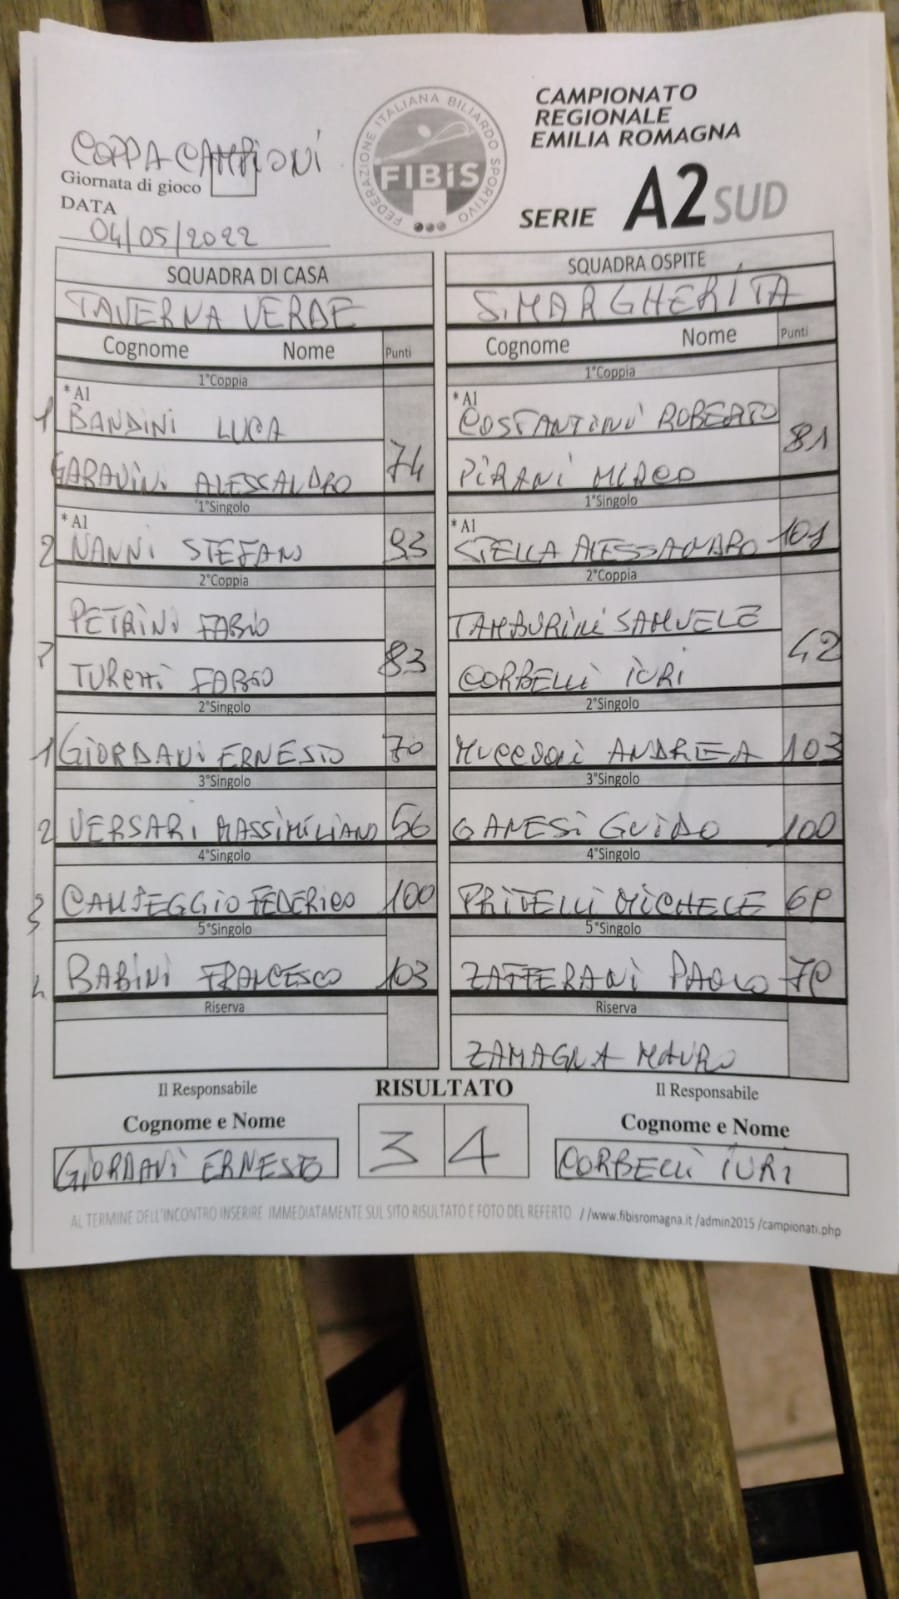 COPPA CAMPIONI
Giornata di gioco
DATA
04/05/2022
FEDERAZIONE ITALIANA BILIARDO SPORTIVO
FIBiS
CAMPIONATO
REGIONALE
EMILIA ROMAGNA
SERIE A2 SUD
SQUADRA DI CASA
TAVERNA VERDE
Cognome Nome Punti
1°Coppia
*A1
1 BANDINI LUCA
GARAVINI ALESSANDRO 74
1°Singolo
*A1
2 NANNI STEFANO 93
2°Coppia
PETRINI FABIO
TURETTI FABIO 83
2°Singolo
1 GIORDANI ERNESTO 70
3°Singolo
2 VERSARI MASSIMILIANO 56
4°Singolo
3 CAMPEGGIO FEDERICO 100
5°Singolo
4 BABINI FRANCESCO 103
Riserva
SQUADRA OSPITE
S.MARGHERITA
Cognome Nome Punti
1°Coppia
*A1
COSTANTINI ROBERTO
PIRANI MIRCO 81
1°Singolo
*A1
STELLA ALESSANDRO 101
2°Coppia
TAMBURINI SAMUELE
CORBELLI IURI 42
2°Singolo
ANDREA 103
3°Singolo
GANESI GUIDO 100
4°Singolo
PRITELLI MICHELE
5°Singolo
ZAFFERANI PAOLO
Riserva
ZAMAGNA MAURO
Il Responsabile
Cognome e Nome
GIORDANI ERNESTO
RISULTATO
3 4
Il Responsabile
Cognome e Nome
CORBELLI IURI
AL TERMINE DELL'INCONTRO INSERIRE IMMEDIATAMENTE SUL SITO RISULTATO E FOTO DEL REFERTO //www.fibisromagna.it /admin2015 /campionati.php